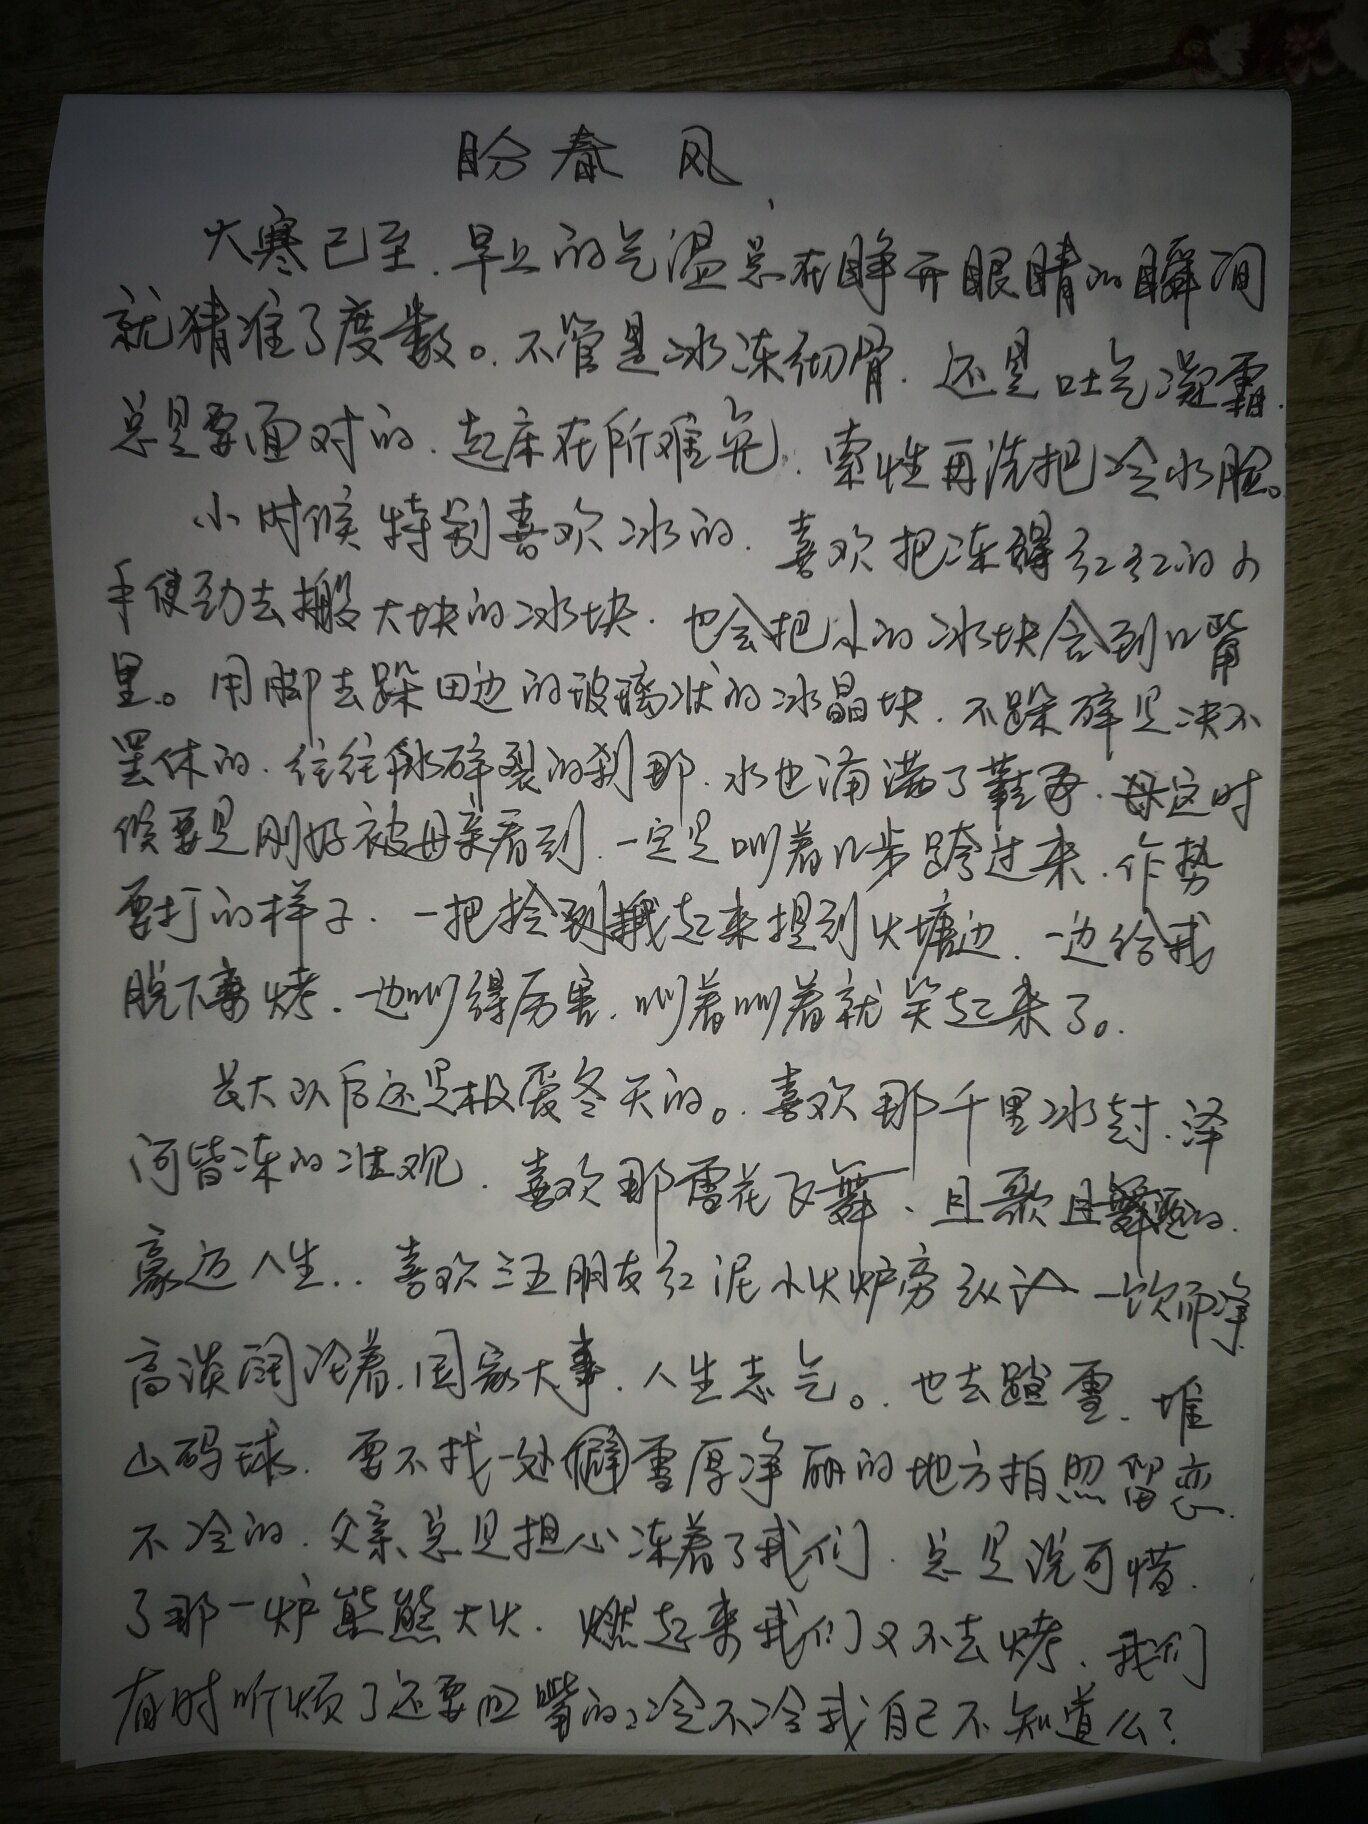 盼春风
大寒已至.早上的气温总在睁开眼睛的瞬间
就猜准了度数。不管是冰冻彻骨.还是吐气凝霜.
总是要面对的.起床在所难免.索性再洗把冷水脸。
小时候特别喜欢冰的.喜欢把冻得红红的小
手使劲去搬大块的冰块.也会把小的冰块含到口嘴
里。用脚去跺田边的玻璃状的冰晶块.不跺碎是决不
罢休的.往往冰碎裂的刹那.水也涌满了鞋子.这时
候要是刚好被母亲看到.一定是叫着几步跨过来.作势
要打的样子.一把拎到我起来提到火塘边.一边给我
脱下来烤.一边叫得厉害.叫着叫着就笑起来了。
长大以后还是极爱冬天的。喜欢那千里冰封.泽
河皆冻的壮观.喜欢那雪花飞舞、且歌且舞的
豪迈人生..喜欢三五朋友红泥小火炉旁纵论一饮而净
高谈阔论着.国家大事.人生志气。也去踏雪.堆
山码球.要不找一处僻雪厚净丽的地方拍照留恋.
不冷的.父亲总是担心冻着了我们.总是说可惜.
了那一炉熊熊大火.燃起来我们又不去烤.我们
有时听烦了还要回嘴的,冷不冷我自己不知道么?